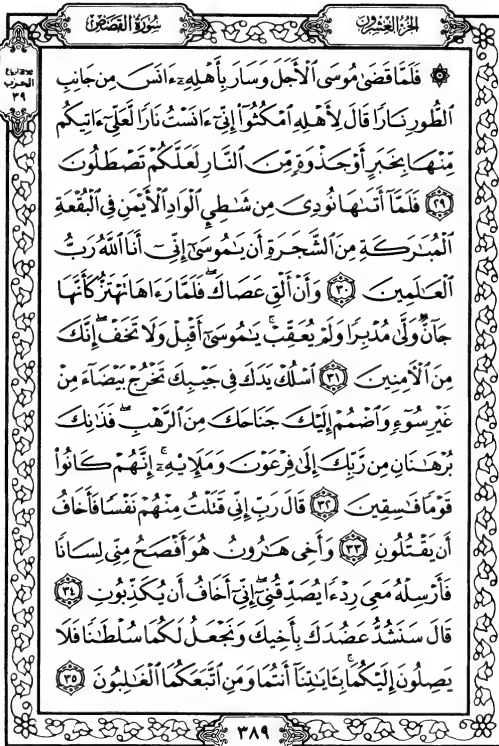 سُورَةُ القَصَصِ
الجُزءُ العِشْرُونَ
الحزب
٣٩
۞ فَلَمَّا قَضَىٰ مُوسَى ٱلۡأَجَلَ وَسَارَ بِأَهۡلِهِۦٓ ءَانَسَ مِن جَانِبِ
ٱلطُّورِ نَارٗا قَالَ لِأَهۡلِهِ ٱمۡكُثُوٓاْ إِنِّيٓ ءَانَسۡتُ نَارٗا لَّعَلِّيٓ ءَاتِيكُم
مِّنۡهَا بِخَبَرٍ أَوۡ جَذۡوَةٖ مِّنَ ٱلنَّارِ لَعَلَّكُمۡ تَصۡطَلُونَ
٢٩ فَلَمَّآ أَتَىٰهَا نُودِيَ مِن شَٰطِيِٕ ٱلۡوَادِ ٱلۡأَيۡمَنِ فِي ٱلۡبُقۡعَةِ
ٱلۡمُبَٰرَكَةِ مِنَ ٱلشَّجَرَةِ أَن يَٰمُوسَىٰٓ إِنِّيٓ أَنَا ٱللَّهُ رَبُّ
ٱلۡعَٰلَمِينَ ٣٠ وَأَنۡ أَلۡقِ عَصَاكَۖ فَلَمَّا رَءَاهَا تَهۡتَزُّ كَأَنَّهَا
جَآنّٞ وَلَّىٰ مُدۡبِرٗا وَلَمۡ يُعَقِّبۡۚ يَٰمُوسَىٰٓ أَقۡبِلۡ وَلَا تَخَفۡۖ إِنَّكَ
مِنَ ٱلۡأٓمِنِينَ ٣١ ٱسۡلُكۡ يَدَكَ فِي جَيۡبِكَ تَخۡرُجۡ بَيۡضَآءَ مِنۡ
غَيۡرِ سُوٓءٖ وَٱضۡمُمۡ إِلَيۡكَ جَنَاحَكَ مِنَ ٱلرَّهۡبِۖ فَذَٰنِكَ
بُرۡهَٰنَانِ مِن رَّبِّكَ إِلَىٰ فِرۡعَوۡنَ وَمَلَإِيْهِۦٓۚ إِنَّهُمۡ كَانُواْ
قَوۡمٗا فَٰسِقِينَ ٣٢ قَالَ رَبِّ إِنِّي قَتَلۡتُ مِنۡهُمۡ نَفۡسٗا فَأَخَافُ
أَن يَقۡتُلُونِ ٣٣ وَأَخِي هَٰرُونُ هُوَ أَفۡصَحُ مِنِّي لِسَانٗا
فَأَرۡسِلۡهُ مَعِيَ رِدۡءٗا يُصَدِّقُنِيٓۖ إِنِّيٓ أَخَافُ أَن يُكَذِّبُونِ ٣٤
قَالَ سَنَشُدُّ عَضُدَكَ بِأَخِيكَ وَنَجۡعَلُ لَكُمَا سُلۡطَٰنٗا فَلَا
يَصِلُونَ إِلَيۡكُمَا بِـَٔايَٰتِنَآۚ أَنتُمَا وَمَنِ ٱتَّبَعَكُمَا ٱلۡغَٰلِبُونَ ٣٥
٣٨٩